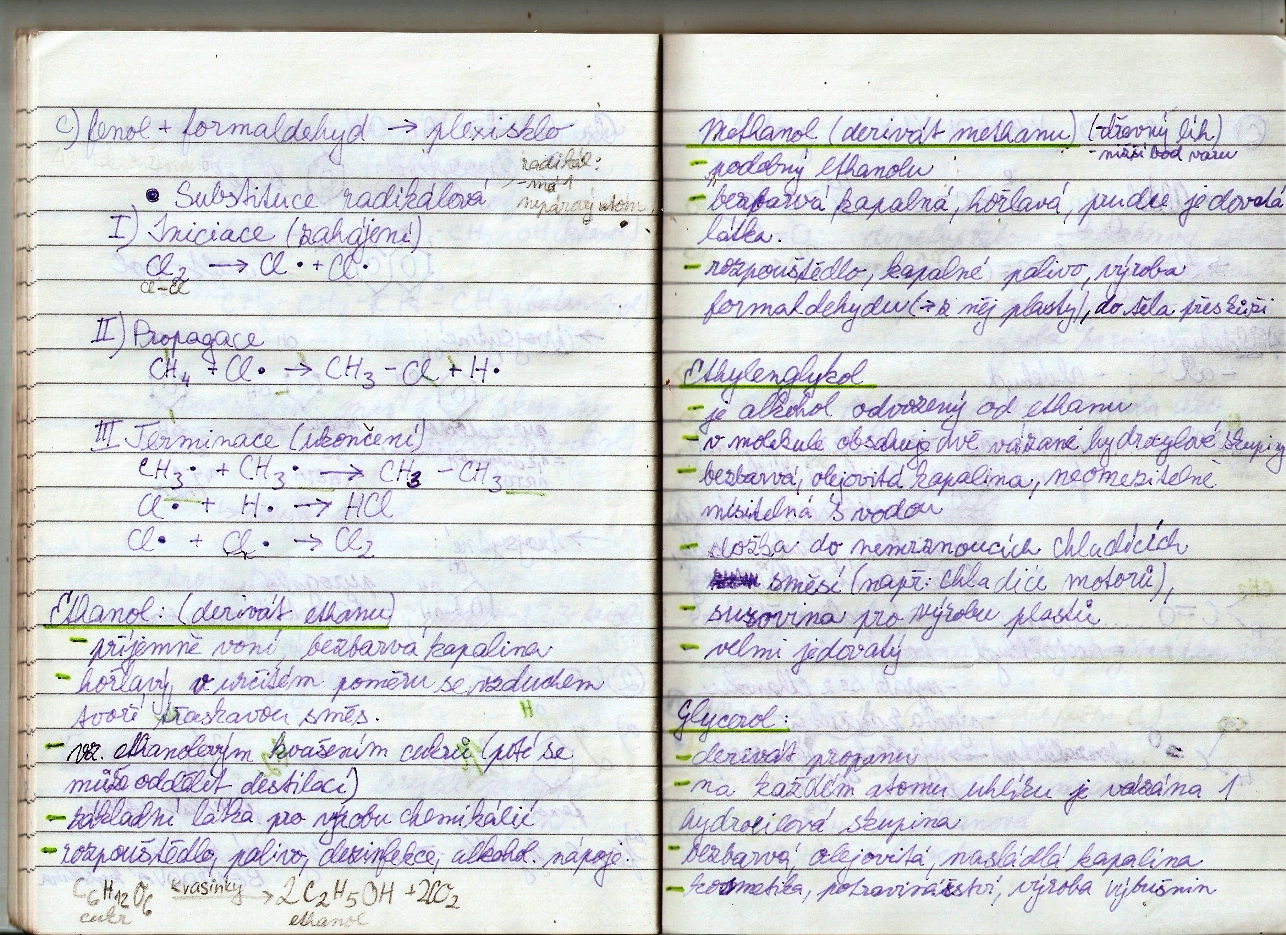 c) fenol + formaldehyd → plexisklo
radikál:
- má 1
nepárový atom
• Substituce radikálová
I) Iniciace (zahájení)
Cl₂ → Cl• + Cl•
Cl–Cl
II) Propagace
CH₄ + Cl• → CH₃ – Cl + H•
III Terminace (ukončení)
CH₃• + CH₃• → CH₃ – CH₃
Cl• + H• → HCl
Cl• + Cl• → Cl₂
Ethanol: (derivát ethanu)
- příjemně voní, bezbarvá kapalina
- hořlavý, v určitém poměru se vzduchem
tvoří třaskavou směs.
- vz. ethanolovým kvašením cukrů (poté se
může oddělit destilací)
- základní látka pro výrobu chemikálií
- rozpouštědlo, palivo, dezinfekce, alkohol. nápoje.
C₆H₁₂O₆ kvasinky → 2C₂H₅OH + 2CO₂
cukr ethanol
Methanol (derivát methanu) (-dřevný líh)
- nižší bod varu
- podobný ethanolu
- bezbarvá kapalná, hořlavá, prudce jedovatá
látka.
- rozpouštědlo, kapalné palivo, výroba
formaldehydu (→ z něj plasty), do těla přes kůži
Ethylenglykol
- je alkohol odvozený od ethanu
- v molekule obsahuje dvě vázané hydroxylové skupiny
- bezbarvá, olejovitá kapalina, neomezitelně
mísitelná s vodou
- složka do nemrznoucích chladících
směsí (např: chladiče motorů),
- surovina pro výrobu plastů
- velmi jedovatý
Glycerol:
- derivát propanu
- na každém atomu uhlíku je vázána 1
hydrocilová skupina
- bezbarvá, olejovitá, nasládlá kapalina
- kosmetika, potravinářství, výroba výbušnin